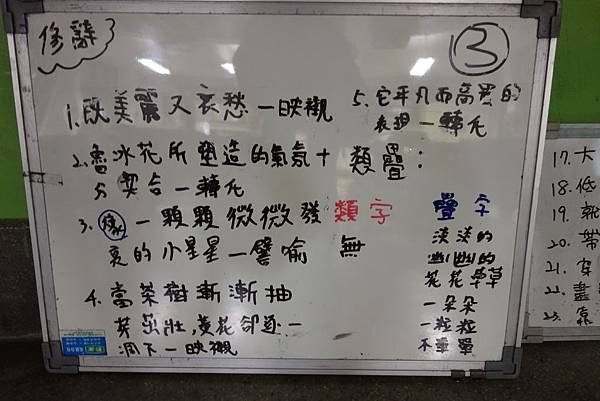 修辭
③
1. 既美麗又哀愁—映襯
2. 魯冰花所塑造的氣氛十
分契合—轉化
3. 像—顆顆微微發
亮的小星星—譬喻
4. 當茶樹漸漸抽
芽茁壯,黃花卻逐一
凋下—映襯
5. 它平凡而高貴的
表現—轉化
類疊:
類字
無
疊字
淡淡的
幽幽的
花花草草
一朵朵
一粒粒
不單單
17. 大
18. 低
19.
20. 帶
21. 穿
22. 盡
23.